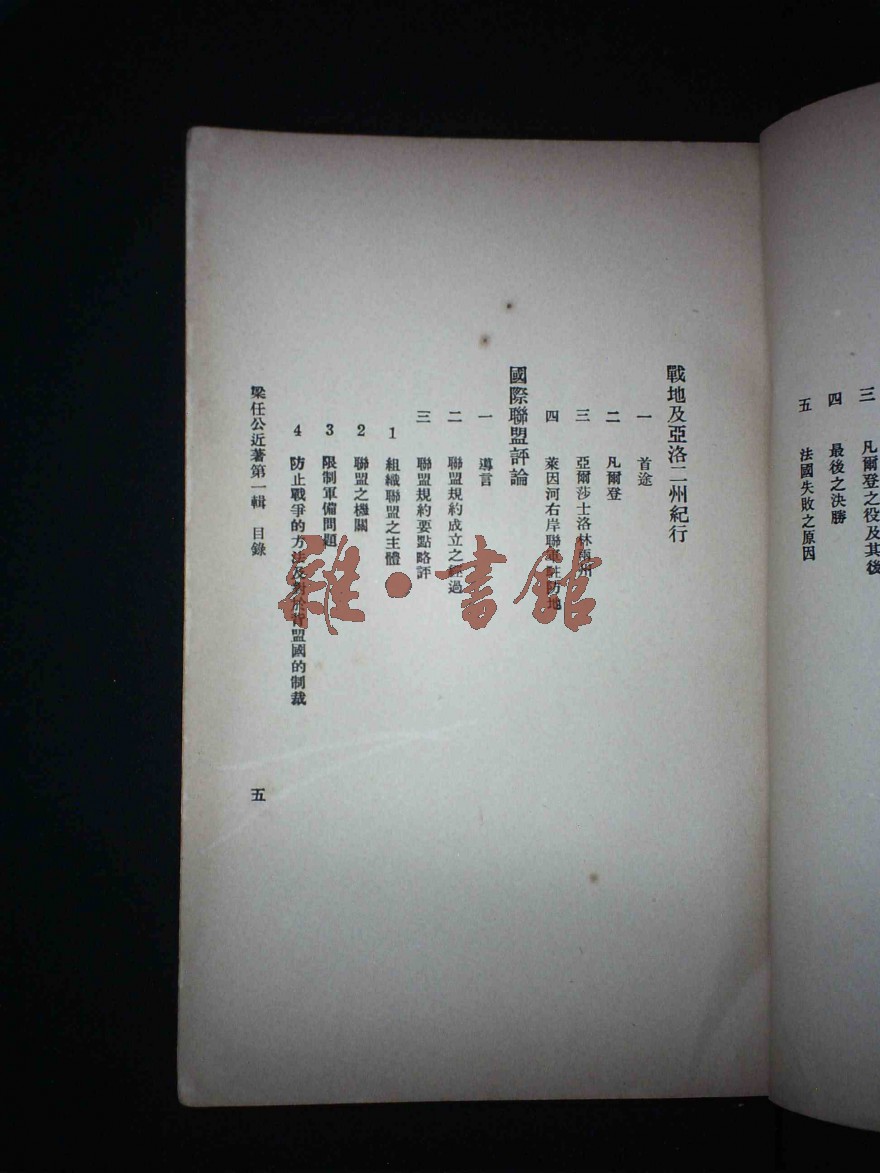 三 凡爾登之役及其後
四 最後之決勝
五 法國失敗之原因
戰地及亞洛二州紀行
一 首途
二 凡爾登
三 亞爾莎士洛林兩州
四 萊因河右岸聯軍駐防地
國際聯盟評論
一 導言
二 聯盟規約成立之經過
三 聯盟規約要點略評
1 組織聯盟之主體
2 聯盟之機關
3 限制軍備問題
4 防止戰爭的方法及對於背盟國的制裁
梁任公近著第一輯 目錄
五
雜·書館